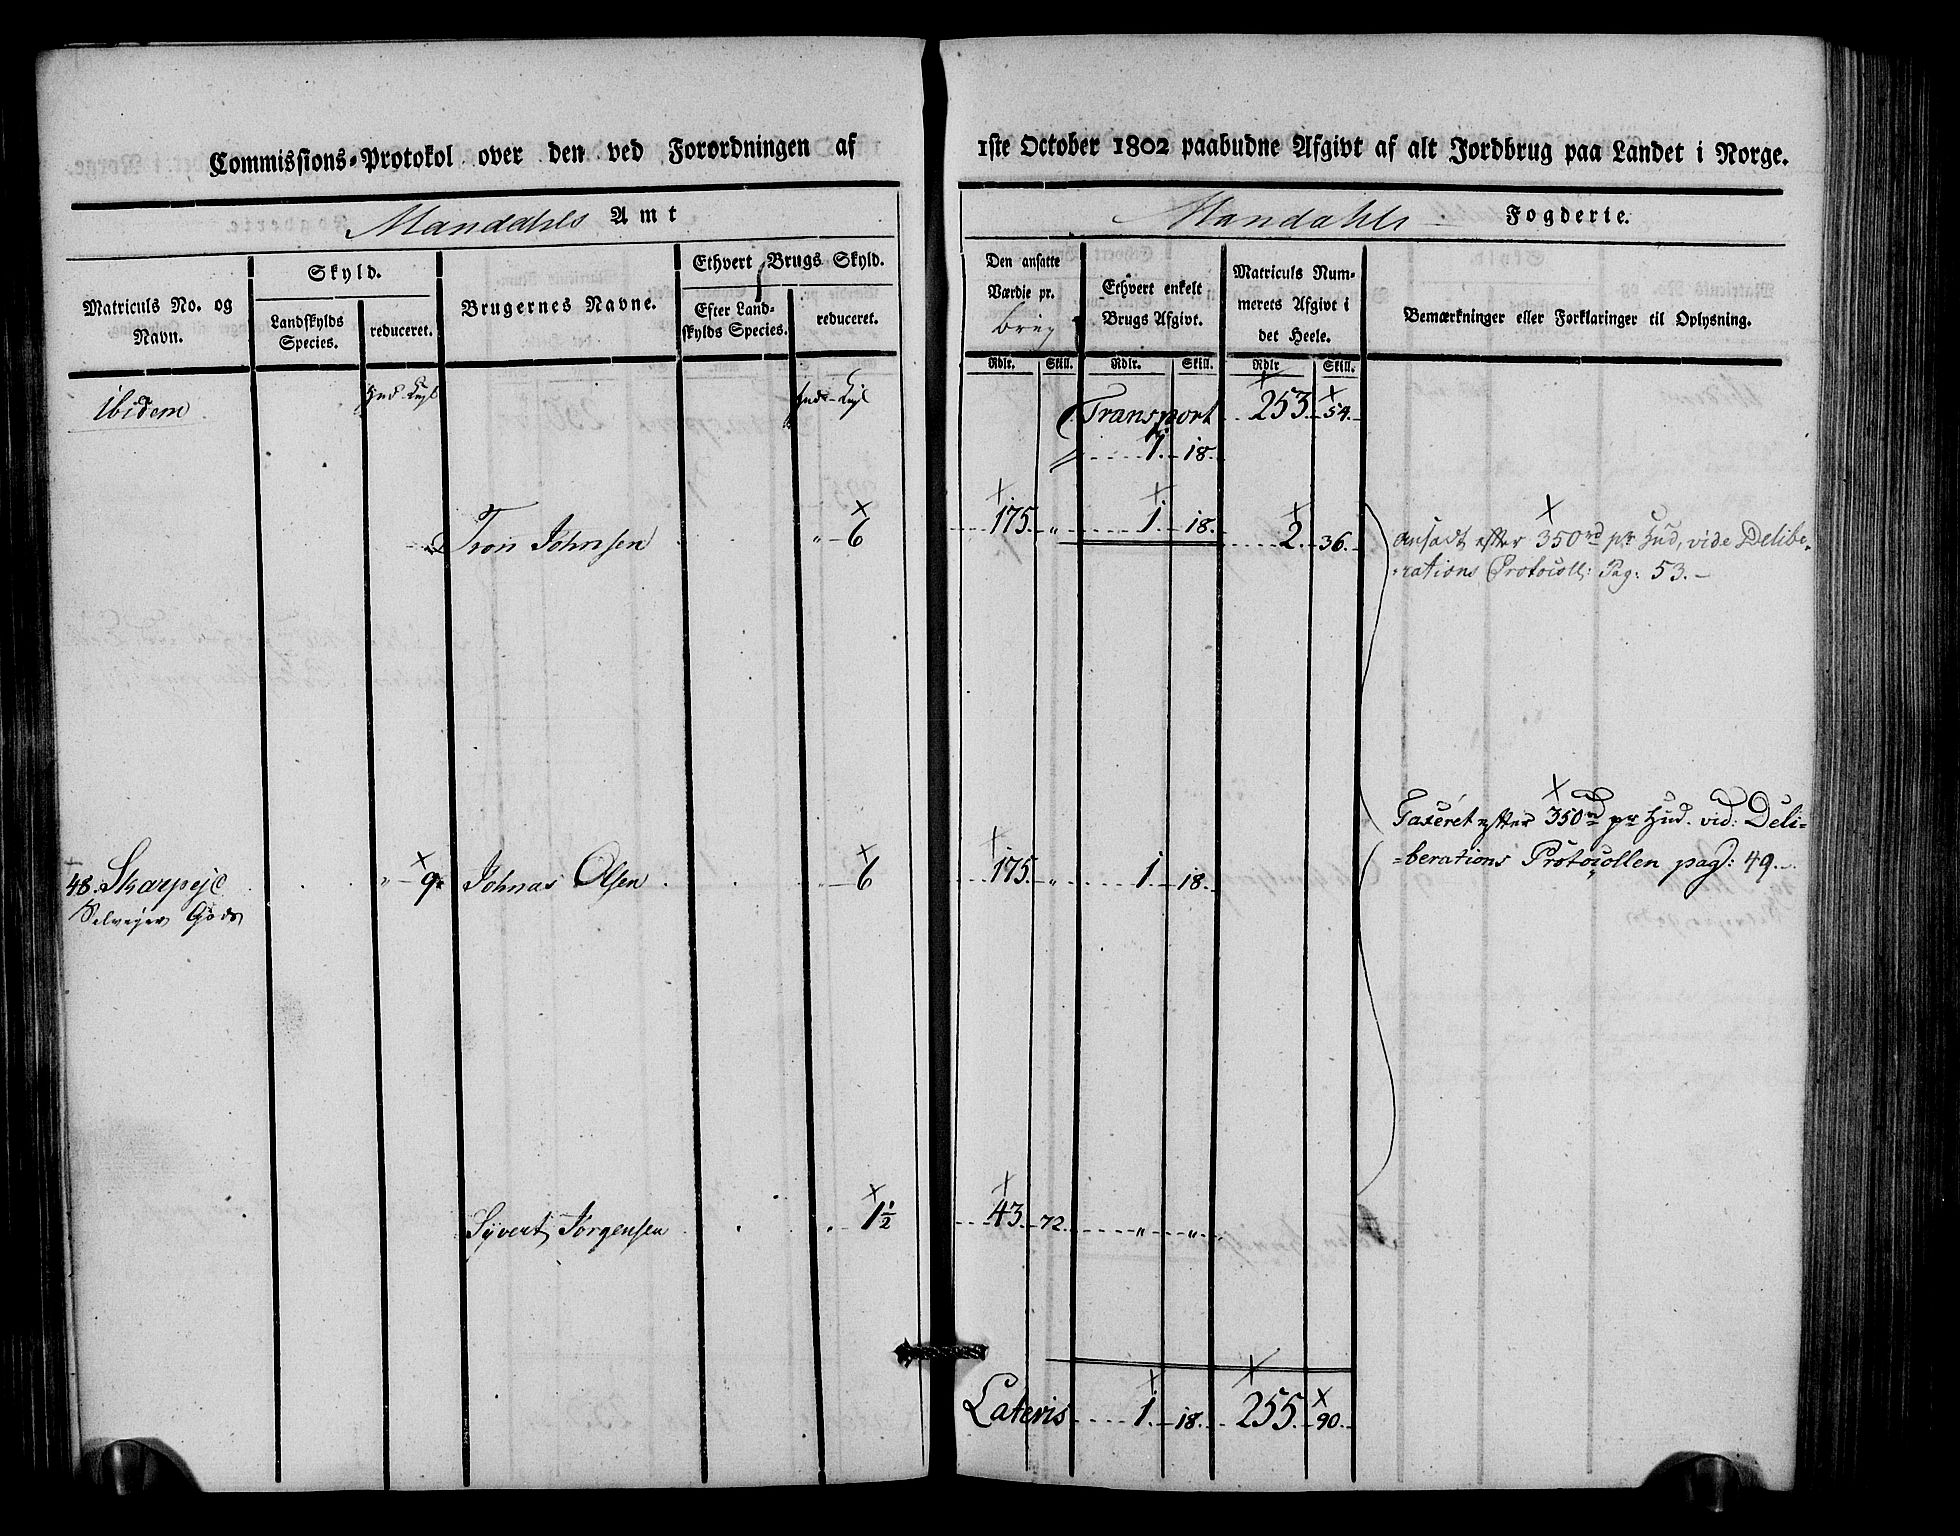 Commissions-Protokol over den ved Forordningen af 1ste October 1802 paabudne Afgivt af alt Jordbrug paa Landet i Norge.
Mandahls Amt
Mandahls Fogderie.
Matriculs No. og Navn.
Skyld.
Landskylds Species.
reduceret.
Brugernes Navne.
Ethvert Brugs Skyld.
Efter Landskylds Species.
reduceret.
Den ansatte Værdie pr. brug
Ethvert enkelt Brugs Afgivt.
Matriculs Nummerets Afgivt i det Heele.
Bemærkninger eller Forklaringer til Oplysning.
Rdlr. Skill. Rdlr. Skill. Rdlr Skill.
Ibidem
Transport 253. 54.
1. 18.
Tron Johnsen " 6 175. " 1. 18. 2. 36.
ansadt efter 350rd pr Hud, vide Delibe-
rations Protocoll: Pag: 53.
48. Skarpeje " 9 Johnas Olsen " 6 175. " 1. 18.
Selvejer Gods
Taxeret efter 350rd pr Hud. vid. Deli=
=berations Protocollen pag: 49.
Syvert Jørgensen " 1½ 43. 72. " "
Lateris 1. 18. 255. 90.